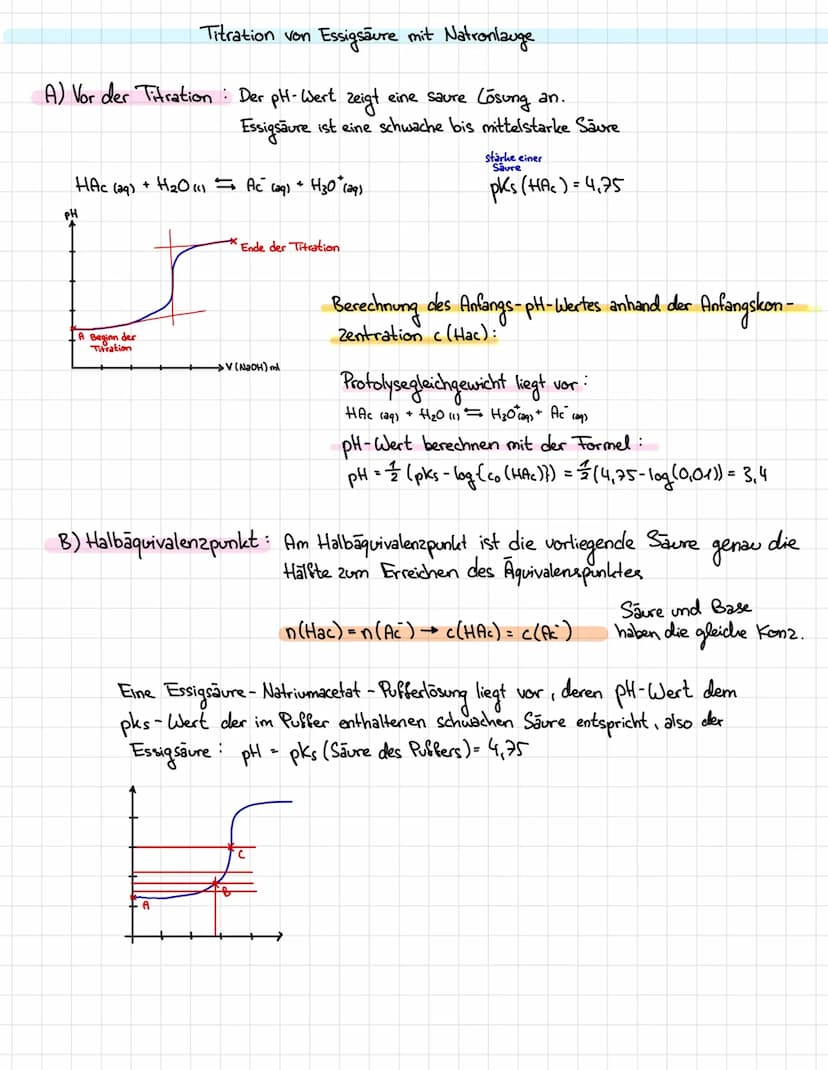 Titration von Essigsäure mit Natronlauge
A) Vor der Titration : Der pH-Wert zeigt eine saure Lösung an.
Essigsäure ist eine schwache bis mittelstarke Säure
stärke einer
Säure
HAc (aq) + H₂O (l) ⇆ Ac⁻ (aq) + H₃O⁺ (aq)
pKs (HAc) = 4,75
pH
Ende der Titration
A Beginn der
Titration
V (NaOH) ml
Berechnung des Anfangs-pH-Wertes anhand der Anfangskon-
zentration c (Hac) :
Protolysegleichgewicht liegt vor :
HAc (aq) + H₂O (l) ⇆ H₃O⁺(aq) + Ac⁻ (aq)
pH-Wert berechnen mit der Formel :
pH = ½ (pKs - log{c₀ (HAc)}) = ½ (4,75 - log(0,01)) = 3,4
B) Halbäquivalenzpunkt : Am Halbäquivalenzpunkt ist die vorliegende Säure genau die
Hälfte zum Erreichen des Äquivalenspunktes
n(Hac) = n(Ac⁻) → c(HAc) = c(Ac⁻)
Säure und Base
haben die gleiche Konz.
Eine Essigsäure - Natriumacetat - Pufferlösung liegt vor, deren pH-Wert dem
pks-Wert der im Puffer enthaltenen schwachen Säure entspricht, also der
Essigsäure : pH = pKs (Säure des Puffers) = 4,75
C
B
A